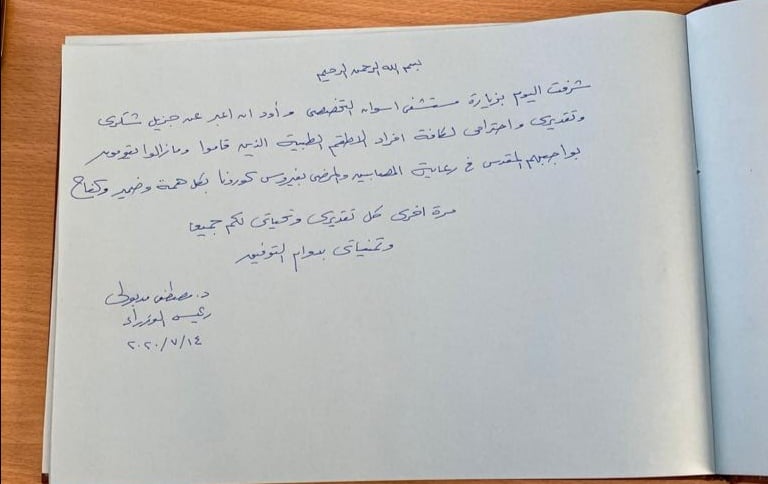 بسم الله الرحمن الرحيم
شرفت اليوم بزيارة مستشفى اسوان التخصصى وأود ان اعبر عن جزيل شكرى
وتقديرى واحترامى لكافة افراد الاطقم الطبية الذين قاموا ومازالوا يقومون
بواجبهم المقدس فى رعاية المصابين والمرضى بفيروس كورونا بكل همة وضمير وكفاح
مرة اخرى كل تقديرى وتحياتى لكم جميعا
وتمنياتى بدوام التوفيق
د. مصطفى مدبولى
رئيس الوزراء
٢٠٢٠/٧/١٤